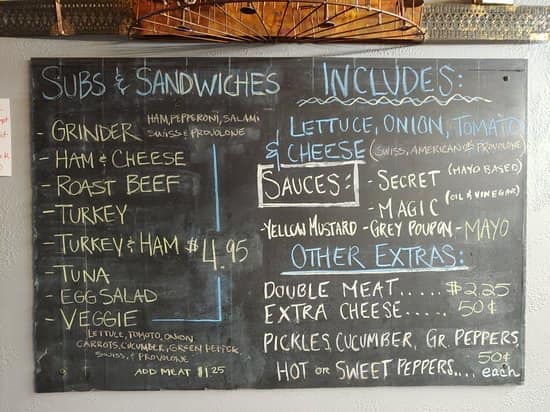 SUBS & SANDWICHES
- GRINDER HAM, PEPPERONI, SALAMI
SWISS & PROVOLONE
- HAM & CHEESE
- ROAST BEEF
- TURKEY
- TURKEY & HAM $4.95
- TUNA
- EGG SALAD
- VEGGIE
LETTUCE, TOMOTO, ONION
CARROTS, CUCUMBER, GREEN PEPPER
SWISS, & PROVOLONE
ADD MEAT $1.25
INCLUDES:
LETTUCE, ONION, TOMATO
& CHEESE (SWISS, AMERICAN OR PROVOLONE)
SAUCES: - SECRET (MAYO BASED)
- MAGIC (OIL & VINEGAR)
- YELLOW MUSTARD - GREY POUPON - MAYO
OTHER EXTRAS:
DOUBLE MEAT..... $2.25
EXTRA CHEESE..... 50¢
PICKLES, CUCUMBER, GR. PEPPERS,
HOT OR SWEET PEPPERS.... 50¢ each